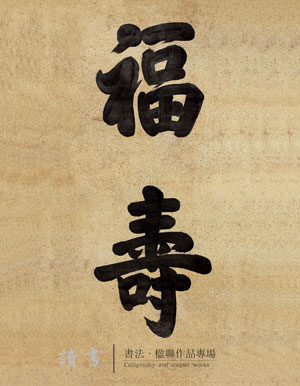 福
壽
讀書
書法·楹聯作品專場
Calligraphy and couplet works